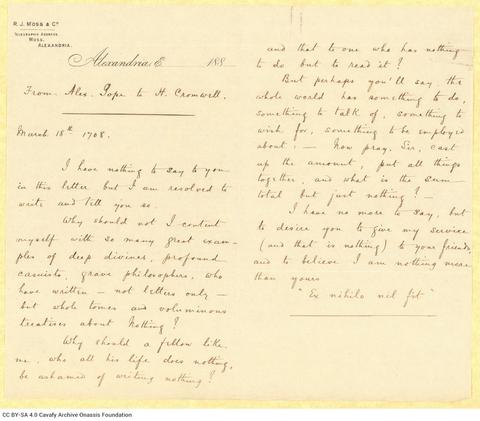 R. J. MOSS & Co
TELEGRAPHIC ADDRESS
MOSS,
ALEXANDRIA.
Alexandria, E. 188
From Alex. Pope to H. Cromwell.
March 18th 1708.
I have nothing to say to you
in this letter but I am resolved to
write and tell you so.
Why should not I content
myself with so many great exam-
ples of deep divines, profound
casuists, grave philosophers, who
have written - not letters only -
but whole tomes and voluminous
treatises about Nothing?
Why should a fellow like
me, who all his life does nothing,
be ashamed of writing nothing?
and that to one who has nothing
to do but to read it?
But perhaps you'll say, the
whole world has something to do,
something to talk of, something to
wish for, something to be employed
about: - Now pray, Sir, cast
up the amount, put all things
together, and what is the sum
total but just nothing? -
I have no more to say, but
to desire you to give my service
(and that is nothing) to your friends,
and to believe I am nothing more
than yours
"Ex nihilo nil fit"
CC BY-SA 4.0 Cavafy Archive Onassis Foundation